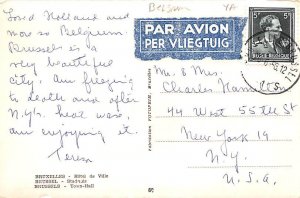 Belgium YA
PAR AVION
PER VLIEGTUIG
5F 5F
BELGIE BELGIQUE
Loved Holland and
now so Belgium
Brussels is a
very beautiful
city. Am freezing
to death and after
N.Y. heat wave,
am enjoying it.
Teresa
Mr & Mrs.
Charles Hamilton
44 West 55th St
New York 19
N.Y.
U.S.A.
BRUXELLES - Hôtel de Ville
BRUSSEL - Stadhuis
BRUSSELS - Town-Hall